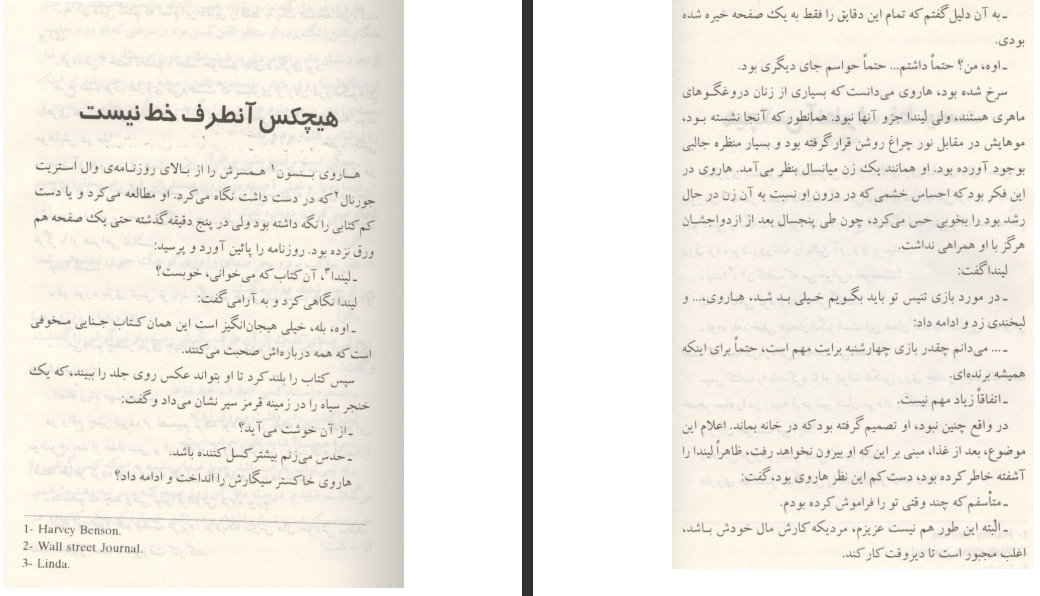 هیچکس آنطرف خط نیست
هـاروی بـنسون۱ هـمسرش را از بـالای روزنـامه‌ی وال اسـتریت
جورنال۲ که در دست داشت نگاه می‌کرد. او مطالعه می‌کرد و یا دست
کم کتابی را نگه داشته بود ولی در پنج دقیقه گذشته حتی یک صفحه هم
ورق نزده بود. روزنامه را پائین آورد و پرسید:
ـ لیندا۳، آن کتاب که می‌خوانی، خوبست؟
لیندا نگاهی کرد و به آرامی گفت:
ـ اوه، بله، خیلی هیجان‌انگیز است این همان کـتاب جـنایی مـخوفی
است که همه درباره‌اش صحبت می‌کنند.
سپس کتاب را بلند کرد تا او بتواند عکس روی جلد را ببیند، که یک
خنجر سیاه را در زمینه قرمز سیر نشان می‌داد و گفت:
ـ از آن خوشت می‌آید؟
ـ حدس می‌زنم بیشتر کسل‌کننده باشد.
هاروی خاکستر سیگارش را انداخت و ادامه داد؟
1- Harvey Benson.
2- Wall street Journal.
3- Linda.
ـ به آن دلیل گفتم که تمام این دقایق را فقط به یک صفحه خیره شده
بودی.
ـ اوه، من؟ حتماً داشتم... حتماً حواسم جای دیگری بود.
سرخ شده بود، هاروی می‌دانست که بسیاری از زنان دروغگـوهای
ماهری هستند، ولی لیندا جزو آنها نبود. همانطور که آنجا نشسته بـود،
موهایش در مقابل نور چراغ روشن قرار گرفته بود و بسیار منظره جالبی
بوجود آورده بود. او همانند یک زن میانسال بنظر می‌آمد. هاروی در
این فکر بود که احساس خشمی که در درون او نسبت به آن زن در حال
رشد بود را بخوبی حس می‌کرد، چون طی پنجسال بعد از ازدواجشـان
هرگز با او همراهی نداشت.
لیندا گفت:
ـ در مورد بازی تنیس تو باید بگـویم خـیلی بـد شـد، هـاروی،... و
لبخندی زد و ادامه داد:
ـ ... می‌دانم چقدر بازی چهارشنبه برایت مهم است، حتماً برای اینکه
همیشه برنده‌ای.
ـ اتفاقاً زیاد مهم نیست.
در واقع چنین نبود، او تصمیم گرفته بود که در خانه بماند. اعلام این
موضوع، بعد از غذا، مبنی بر این که او بیرون نخواهد رفت، ظاهراً لیندا را
آشفته خاطر کرده بود، دست کم این نظر هاروی بود، گفت:
ـ متأسفم که چند وقتی تو را فراموش کرده بودم.
ـ البته این طور هم نیست عزیزم، مردیکه کارش مال خودش بـاشد،
اغلب مجبور است تا دیروقت کار کند.